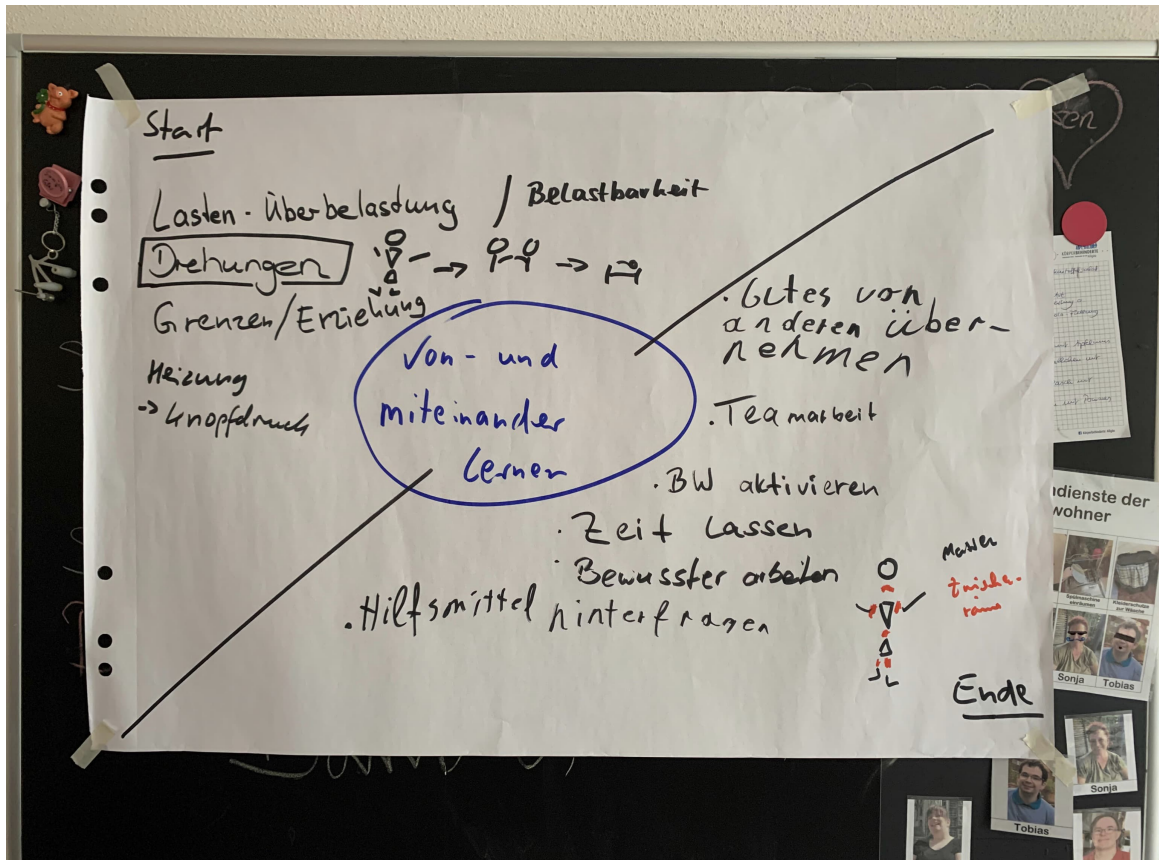 Start
Lasten - Überbelastung / Belastbarkeit
Drehungen
Grenzen/Erziehung
Heizung
-> Knopfdruck
Von - und
miteinander
lernen
. Gutes von
anderen über-
nehmen
. Teamarbeit
. BW aktivieren
. Zeit lassen
. Bewusster arbeiten
. Hilfsmittel hinterfragen
Massen
Zwische-
räume
Ende
sen
ndienste der
wohner
Spülmaschine
einräumen
Kleiderschutze
zur Wäsche
Sonja
Tobias
Sonja
Tobias